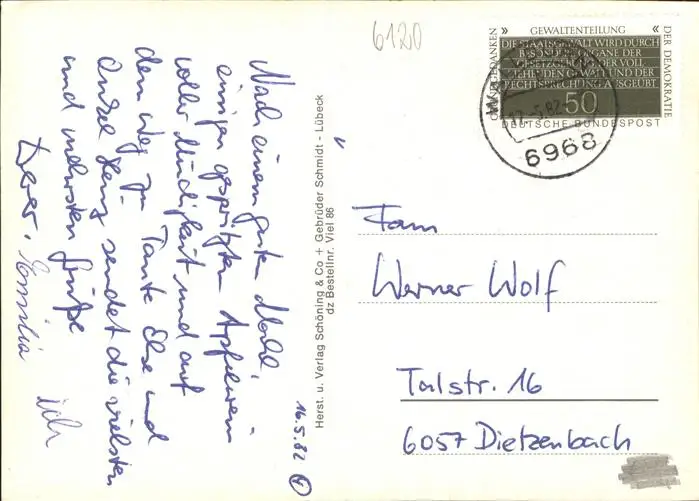 6120
» GEWALTENTEILUNG «
GRUNDGEDANKEN
DER DEMOKRATIE
DIE STAATSGEWALT WIRD DURCH
BESONDERE ORGANE DER
GESETZGEBUNG, DER VOLL
ZIEHENDEN GEWALT UND DER
RECHTSPRECHUNG AUSGEÜBT
50
DEUTSCHE BUNDESPOST
17.-5.82
6968
Nach einem guten Mahl,
einigen gespritzten Apfelwein
voller Müdigkeit und auf
dem Weg zu Tante Else und
Onkel Heinz sendet die vielsten
und mehrsten Grüße
Euer,
Emilia
ich
16.5.82
Herst. u. Verlag Schöning & Co + Gebrüder Schmidt - Lübeck
dz Bestellnr. Viel 86
Fam
Werner Wolf
Talstr. 16
6057 Dietzenbach